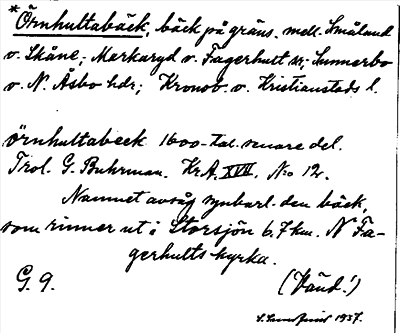 *Örnhultabäck, bäck på gräns. mell. Småland
o. Skåne; Markaryd o. Fagerhult sn; Sunnerbo
o. N. Åsbo hdr; Kronob. o. Kristianstads l.
örnhultabeck 1600-tal. senare del.
Trol. G. Buhrman. Kr.A. XVII, No 12.
Namnet avsåg synbarl. den bäck,
som rinner ut i Storsjön 6,7 km. N Fa-
gerhults kyrka.
G. 9. (Vänd!)
1937.